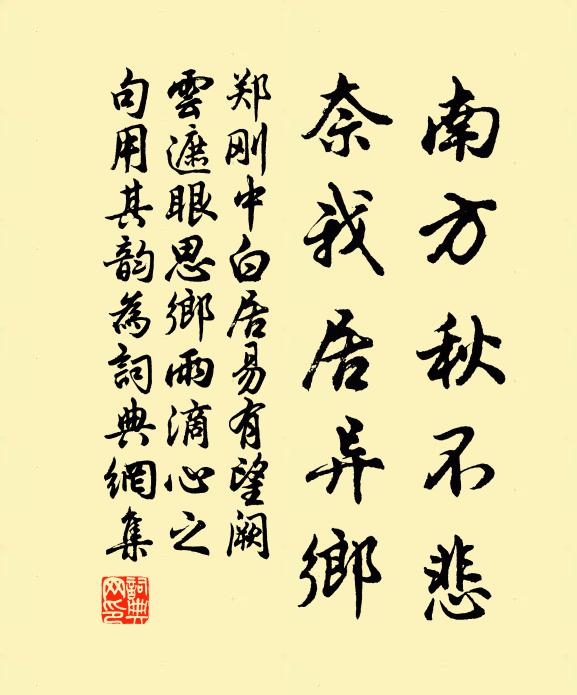 南方秋不悲
奈我居异鄉
郑刚中白居易有望阙
雲遮眼思鄉雨滴心之
句用其韵為詞典網集
詞典网印